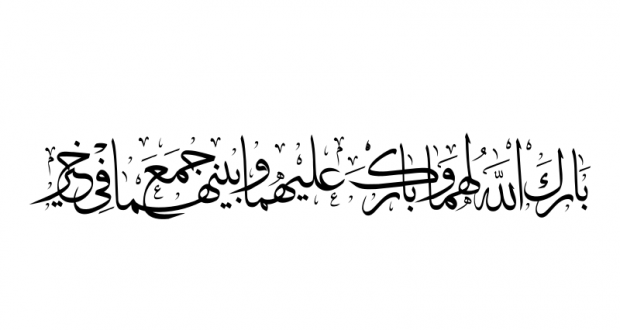 بارك الله لهما وبارك عليهما وجمع بينهما في خير